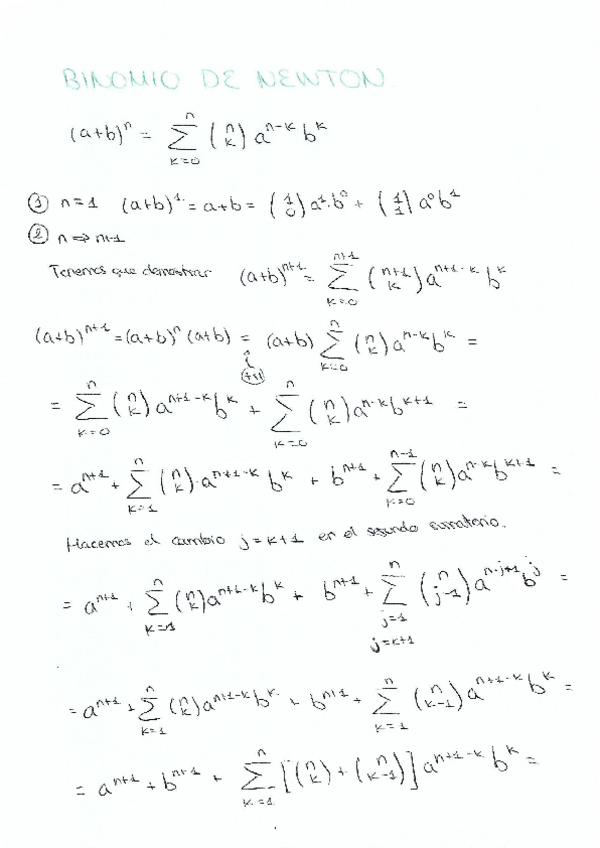 BINOMIO DE NEWTON
(a+b)^n = \sum_{k=0}^{n} \binom{n}{k} a^{n-k} b^k
① n=1 (a+b)^1 = a+b = \binom{1}{0} a^1 \cdot b^0 + \binom{1}{1} a^0 b^1
② n ⇒ n+1
Tenemos que demostrar (a+b)^{n+1} = \sum_{k=0}^{n+1} \binom{n+1}{k} a^{n+1-k} b^k
(a+b)^{n+1} = (a+b)^n (a+b) = (a+b) \sum_{k=0}^{n} \binom{n}{k} a^{n-k} b^k =
= \sum_{k=0}^{n} \binom{n}{k} a^{n+1-k} b^k + \sum_{k=0}^{n} \binom{n}{k} a^{n-k} b^{k+1} =
= a^{n+1} + \sum_{k=1}^{n} \binom{n}{k} \cdot a^{n+1-k} b^k + b^{n+1} + \sum_{k=0}^{n-1} \binom{n}{k} a^{n-k} b^{k+1} =
Hacemos el cambio j=k+1 en el segundo sumatorio.
= a^{n+1} + \sum_{k=1}^{n} \binom{n}{k} a^{n+1-k} b^k + b^{n+1} + \sum_{j=1}^{n} \binom{n}{j-1} a^{n-j+1} b^j =
j=k+1
= a^{n+1} + \sum_{k=1}^{n} \binom{n}{k} a^{n+1-k} b^k + b^{n+1} + \sum_{k=1}^{n} \binom{n}{k-1} a^{n+1-k} b^k =
= a^{n+1} + b^{n+1} + \sum_{k=1}^{n} [\binom{n}{k} + \binom{n}{k-1}] a^{n+1-k} b^k =